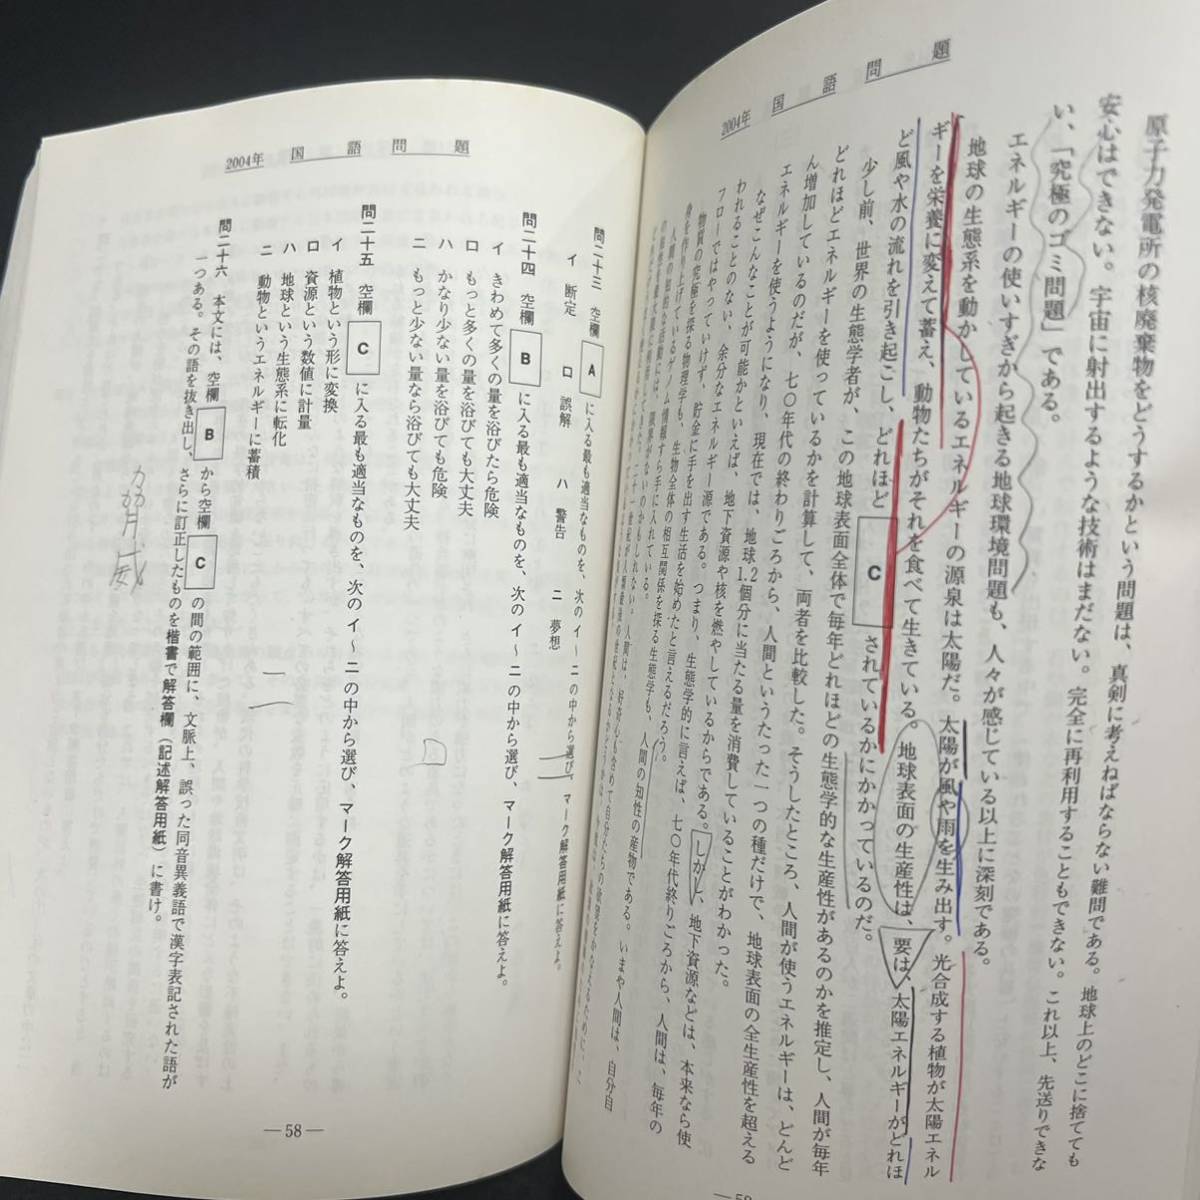 2004年 国語問題
原子力発電所の核廃棄物をどうするかという問題は、真剣に考えねばならない難問である。地球上のどこに捨てても
安心はできない。宇宙に射出するような技術はまだない。完全に再利用することもできない。これ以上、先送りできな
い、「究極のゴミ問題」である。
エネルギーの使いすぎから起きる地球環境問題も、人々が感じている以上に深刻である。
地球の生態系を動かしているエネルギーの源泉は太陽だ。太陽が風や雨を生み出す。光合成する植物が太陽エネル
ギーを栄養に変えて蓄え、動物たちがそれを食べて生きている。地球表面の生産性は、要は、太陽エネルギーがどれほ
ど風や水の流れを引き起こし、どれほど C されているかにかかっているのだ。
少し前、世界の生態学者が、この地球表面全体で毎年どれほどの生態学的な生産性があるのかを推定し、人間が毎年
どれほどエネルギーを使っているかを計算して、両者を比較した。そうしたところ、人間が使うエネルギーは、どんど
ん増加しているのだが、七〇年代の終わりごろから、人間というたった一つの種だけで、地球表面の全生産性を超える
エネルギーを使うようになり、現在では、地球1.2個分に当たる量を消費していることがわかった。
なぜこんなことが可能かといえば、地下資源や核を燃やしているからである。しかし、地下資源などは、本来なら使
われることのない、余分なエネルギー源である。つまり、生態学的に言えば、七〇年代終りごろから、人間は、毎年の
フローではやっていけず、貯金に手を出す生活を始めたと言えるだろう。
物質の究極を探る物理学も、生物全体の相互関係を探る生態学も、人間の知性の産物である。いまや人間は、自分自
身を作り上げているゲノム情報すら手に入れている。
2004年 国語問題
問二十三 空欄 A に入る最も適当なものを、次のイ〜ニの中から選び、マーク解答用紙に答えよ。
イ 断定 ロ 誤解 ハ 警告 ニ 夢想
問二十四 空欄 B に入る最も適当なものを、次のイ〜ニの中から選び、マーク解答用紙に答えよ。
イ きわめて多くの量を浴びたら危険
ロ もっと多くの量を浴びても大丈夫
ハ かなり少ない量を浴びても危険
ニ もっと少ない量なら浴びても大丈夫
ロ
問二十五 空欄 C に入る最も適当なものを、次のイ〜ニの中から選び、マーク解答用紙に答えよ。
イ 植物という形に変換
ロ 資源という数値に計量
ハ 地球という生態系に転化
ニ 動物というエネルギーに蓄積
問二十六 本文には、空欄 B から空欄 C の間の範囲に、文脈上、誤った同音異義語で漢字表記された語が
一つある。その語を抜き出し、さらに訂正したものを楷書で解答欄（記述解答用紙）に書け。
―58―